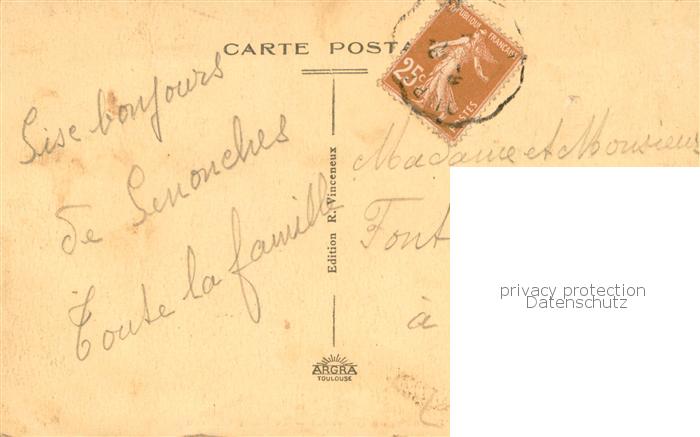 CARTE POSTA
REPUBLIQUE FRANÇAISE
25c
POSTES
Sise bonjours
de Senonches
Toute la famille
Edition R. Vinceneux
Madame et Monsieur
Font
à
ARGRA
TOULOUSE
privacy protection
Datenschutz